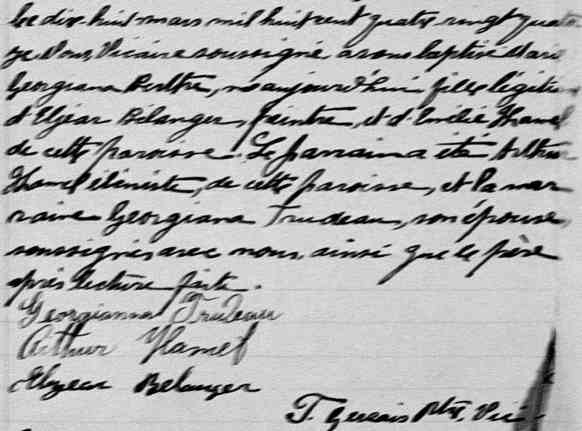 Le dix-huit mars mil huit cent quatre vingt quator
ze Nous, Vicaire soussigné avons baptisé Marie
Georgiana Berthe, née aujourd'hui fille légitime
d'Elzéar Bélanger, peintre, et d'Emélie Hamel
de cette paroisse. Le parrain a été Arthur
Hamel ébéniste, de cette paroisse, et la mar
raine Georgiana Trudeau, son épouse,
soussignés avec nous, ainsi que le père
après lecture faite.
Georgianna Trudeau
Arthur Hamel
Elzear Belanger
T. Gervais Ptre, Vic.